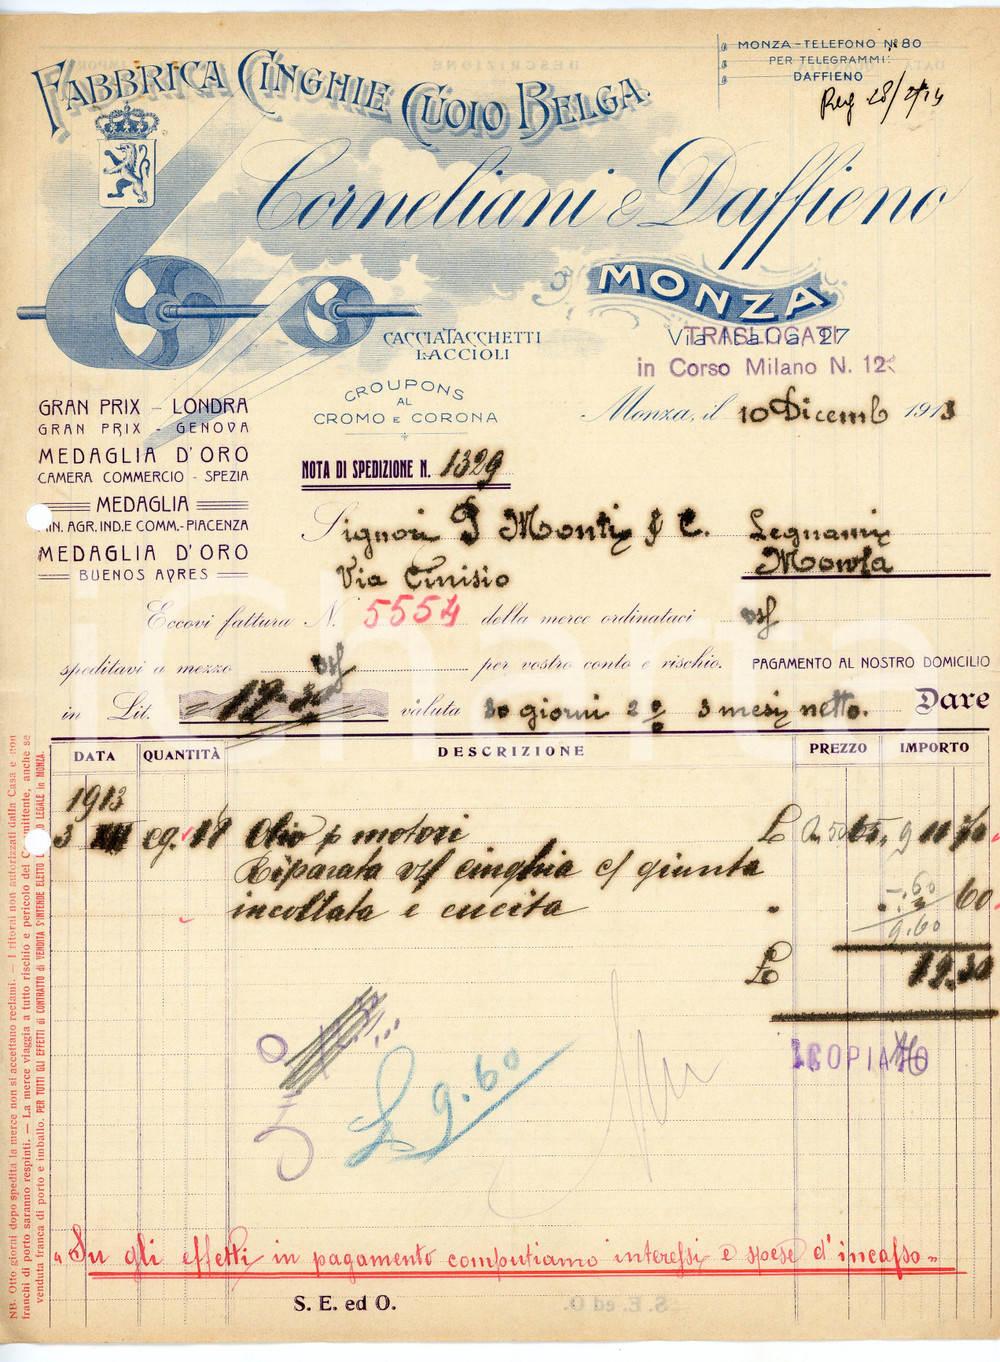 FABBRICA CINGHIE CUOIO BELGA
MONZA - TELEFONO N° 80
PER TELEGRAMMI:
DAFFIENO
Corneliani & Daffieno
MONZA
Via Italia, 27
TRASLOCATI
in Corso Milano N. 12
CACCIATACCHETTI
LACCIOLI
CROUPONS
AL
CROMO E CORONA
GRAN PRIX - LONDRA
GRAN PRIX - GENOVA
MEDAGLIA D'ORO
CAMERA COMMERCIO - SPEZIA
MEDAGLIA
MIN. AGR. IND. E COMM. - PIACENZA
MEDAGLIA D'ORO
BUENOS AYRES
Monza, il 10 Dicemb 1913
NOTA DI SPEDIZIONE N. 1329
Signori P Monti & C. Legnami
Via Cinisio Monza
Eccovi fattura N. 5554 della merce ordinataci vs/
speditavi a mezzo vs/ per vostro conto e rischio. PAGAMENTO AL NOSTRO DOMICILIO
in Lit. 12.30 valuta 30 giorni 2% 3 mesi netto. Dare
DATA QUANTITÀ DESCRIZIONE PREZZO IMPORTO
1913
3 XII Cg. 18 Olio p motori £ 65 11 70
Riparata vs/ cinghia c/ giunta
incollata e cucita " 60
9.60
£ 12.30
COPIATO
£ 9.60
"Su gli effetti in pagamento computiamo interessi e spese d'incasso"
S. E. ed O.
NB. Otto giorni dopo spedita la merce non si accettano reclami. — I ritorni non autorizzati dalla Casa e non
franchi di porto saranno respinti. — La merce viaggia a tutto rischio e pericolo del Committente, anche se
venduta franca di porto e imballo. PER TUTTI GLI EFFETTI di CONTRATTO di VENDITA S'INTENDE ELETTO LEGALE in MONZA.